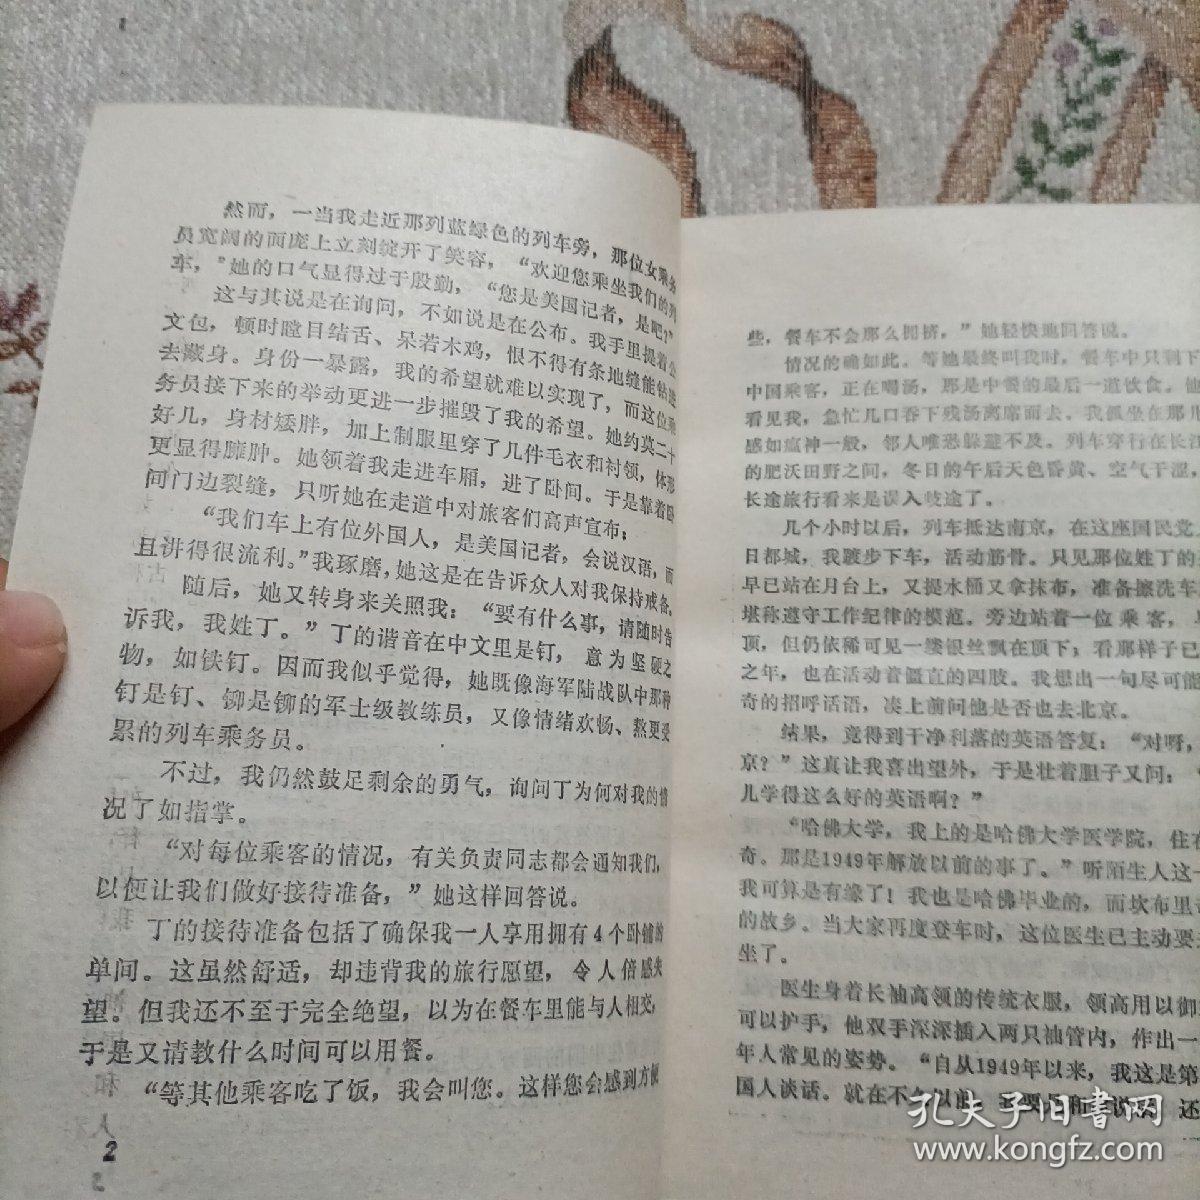 然而，一当我走近那列蓝绿色的列车旁，那位女乘务
员宽阔的面庞上立刻绽开了笑容，“欢迎您乘坐我们的列
车，”她的口气显得过于殷勤，“您是美国记者，是吧？”
这与其说是在询问，不如说是在公布。我手里提着公
文包，顿时瞠目结舌、呆若木鸡，恨不得有条地缝能钻进
去藏身。身份一暴露，我的希望就难以实现了，而这位乘
务员接下来的举动更进一步摧毁了我的希望。她约莫二十
好几，身材矮胖，加上制服里穿了几件毛衣和衬领，体形
更显得臃肿。她领着我走进车厢，进了卧间。于是靠着卧
间门边裂缝，只听她在走道中对旅客们高声宣布：
“我们车上有位外国人，是美国记者，会说汉语，而
且讲得很流利。”我琢磨，她这是在告诉众人对我保持戒备。
随后，她又转身来关照我：“要有什么事，请随时告
诉我，我姓丁。”丁的谐音在中文里是钉，意为坚硬之
物，如铁钉。因而我似乎觉得，她既像海军陆战队中那种
钉是钉、铆是铆的军士级教练员，又像情绪欢畅、熬更受
累的列车乘务员。
不过，我仍然鼓足剩余的勇气，询问丁为何对我的情
况了如指掌。
“对每位乘客的情况，有关负责同志都会通知我们，
以便让我们做好接待准备，”她这样回答说。
丁的接待准备包括了确保我一人享用拥有4个卧铺的
单间。这虽然舒适，却违背我的旅行愿望，令人倍感失
望。但我还不至于完全绝望，以为在餐车里能与人相交，
于是又请教什么时间可以用餐。
“等其他乘客吃了饭，我会叫您。这样您会感到方便
2
些，餐车不会那么拥挤，”她轻快地回答说。
情况的确如此。等她最终叫我时，餐车中只剩下
中国乘客，正在喝汤，那是中餐的最后一道饮食。他
看见我，急忙几口吞下残汤离席而去。我孤坐在那儿
感如瘟神一般，邻人唯恐躲避不及。列车穿行在长江
的肥沃田野之间，冬日的午后天色昏黄、空气干湿，
长途旅行看来是误入歧途了。
几个小时以后，列车抵达南京，在这座国民党
日都城，我踱步下车，活动筋骨。只见那位姓丁的
早已站在月台上，又提水桶又拿抹布，准备擦洗车
堪称遵守工作纪律的模范。旁边站着一位乘客，
顶，但仍依稀可见一缕银丝飘在顶下；看那样子已
之年，也在活动着僵直的四肢。我想出一句尽可能
奇的招呼话语，凑上前问他是否也去北京。
结果，竟得到干净利落的英语答复：“对呀，
京？”这真让我喜出望外，于是壮着胆子又问：
儿学得这么好的英语啊？”
“哈佛大学，我上的是哈佛大学医学院，住在
奇。那是1949年解放以前的事了。”听陌生人这一
我可算是有缘了！我也是哈佛毕业的，而坎布里奇
的故乡。当大家再度登车时，这位医生已主动要
坐了。
医生身着长袖高领的传统衣服，领高用以御
可以护手，他双手深深插入两只袖管内，作出一
年人常见的姿势。“自从1949年以来，我这是第
国人谈话。就在不久以前，还
孔夫子旧书网
www.kongfz.com